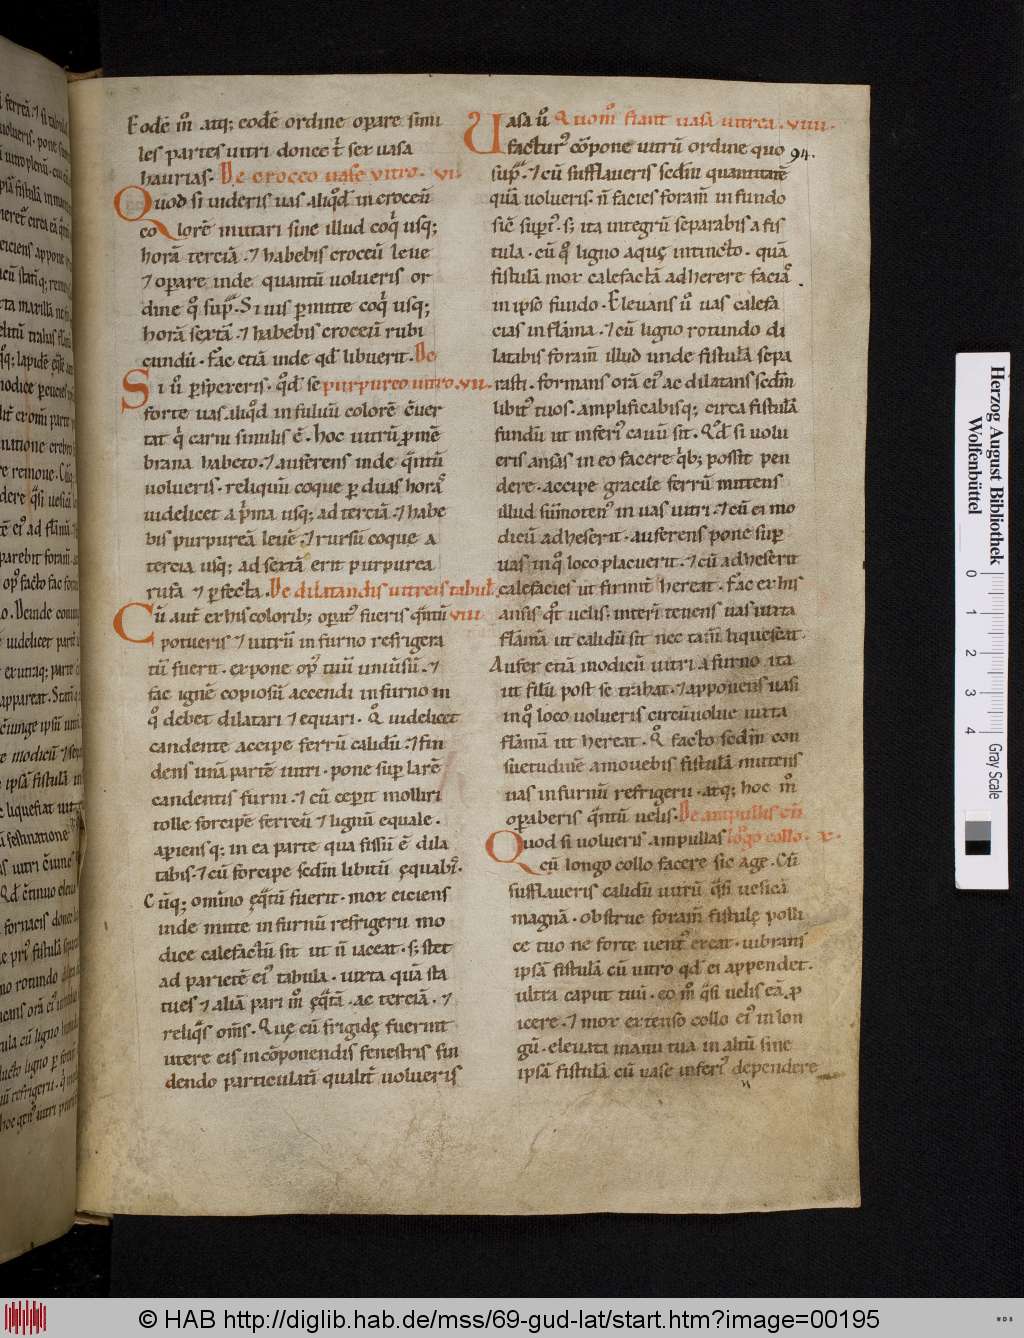 Eodē m̄ atq; eodē ordine oꝑare simi
les partes uitri donec t̄ sex uasa
haurias. De croceo uase uitro. vi.
Quod si uideris uas aliqͦd in croceū
colorē mutari sine illud coqͥ usq;
horā terciā. ⁊ habebis croceū leue
⁊ oꝑare inde quantū uolueris or
dine qͦ supͣ. Si uis ꝑmitte coqͥ usq;
horā sextā. ⁊ habebis croceū rubi
cundū. Fac etiā inde qd̄ libuerit. De
Si ū ꝑspexeris. qͦd se purpureo uitro. vii.
forte uas aliqͦd in fuluū colorē c̄uer
tat qͥ carni similis ē. hoc uitrū ꝓ mē
brana habeto. ⁊ auferens inde qͣntū
uolueris. reliquū coque ꝑ duas horas
uidelicet a pͥma usq; ad terciā. ⁊ habe
bis purpureā leuē. ⁊ rursū coque a
tercia usq; ad sextā erit purpurea
rufa ⁊ ꝑfecta. De dilatandis uitreis tabul
Cū aut̄ ex his colorib; oꝑatꝰ fueris qͣntū viii
potueris ⁊ uitrū in furno refrigera
tū fuerit. expone opꝰ tuū uniūsū. ⁊
fac ignē copiosū accendi in furno in
qͦ debet dilatari ⁊ equari. Qͦ uidelicet
candente accipe ferrū calidū. ⁊ fin
dens unā partē uitri. pone suꝑ larē
candentis furni. ⁊ cū ceꝑit molliri
tolle forcipē ferreū ⁊ lignū equale.
aꝑiensq; in ea parte qua fissū ē dila
tabis. ⁊ cū forcipe scdm̄ libitū ęquabis.
Cūq; omīno ęqͣtū fuerit. mox eiciens
inde mitte in furnū refrigerii mo
dice calefactū sit ut n̄ iaceat. s; stet
ad parietē eiꝰ tabula. iuxta quā sta
tues ⁊ aliā pari m̄ ęqͣtā. ac terciā. ⁊
reliqͣs om̄s. Quę cū frigidę fuerint
utere eis in cōponendis fenestris fin
dendo particulatī qualit̄ uolueris
Vasa ū Quom̄ fiant uasa uitrea. viiii.
facturꝰ cōpone uitrū ordine quo 94.
supͣ. ⁊ cū sufflaueris scdm̄ quantitatē
quā uolueris. n̄ facies foram̄ in fundo
sic̄ suꝑtꝰ. s; ita integrū separabis a fis
tula. cū qͦ ligno aquę intincto. quā
fistulā mox calefactā adherere facias
in ipso fundo. Eleuans ū uas calefa
cias in flāma. ⁊ cū ligno rotundo di
latabis foram̄ illud unde fistulā sepa
rasti. formans orā eiꝰ ac dilatans scdm̄
libitꝰ tuos. amplificabisq; circa fistulā
fundū ut inferiꝰ cauū sit. Qd̄ si uolu
eris ansas in eo facere qͥb; possit pen
dere. accipe gracile ferrū mittens
illud sūmotenꝰ in uas uitri. ⁊ cū ei mo
dicū adheserit. auferens pone suꝑ
uas in qͦ loco placuerit. ⁊ cū adheserit
calefacies ut firmit̄ hereat. Fac ex his
ansis qͦt uelis. interī tenens uas iuxta
flāmā ut calidū sit nec tam̄ liquescat.
Aufer etiā modicū uitri a furno ita
ut filū post se trahat. ⁊ apponens uasi
in qͦ loco uolueris circūuolue iuxta
flāmā ut hereat. Qͦ facto scdm̄ con
suetudinē amouebis fistulā mittens
uas in furnū refrigerii. atq; hoc m̊
oꝑaberis qͣntū uelis. De ampullis cū
Quod si uolueris ampullas lōgo collo. x.
cū longo collo facere sic age. Cū
sufflaueris calidū uitrū qͣsi uesicā
magnā. obstrue foram̄ fistulę polli
ce tuo ne forte uentꝰ exeat. uibrans
ipsā fistulā cū uitro qd̄ ei appendet.
ultra caput tuū. eo m̊ qͣsi uelis eā ꝓ
icere. ⁊ mox extenso collo eiꝰ in lon
gū. eleuata manu tua in altū sine
ipsā fistulā cū uase inferiꝰ dependere
Herzog August Bibliothek
Wolfenbüttel
0 1 2 3 4 Gray Scale
© HAB http://diglib.hab.de/mss/69-gud-lat/start.htm?image=00195